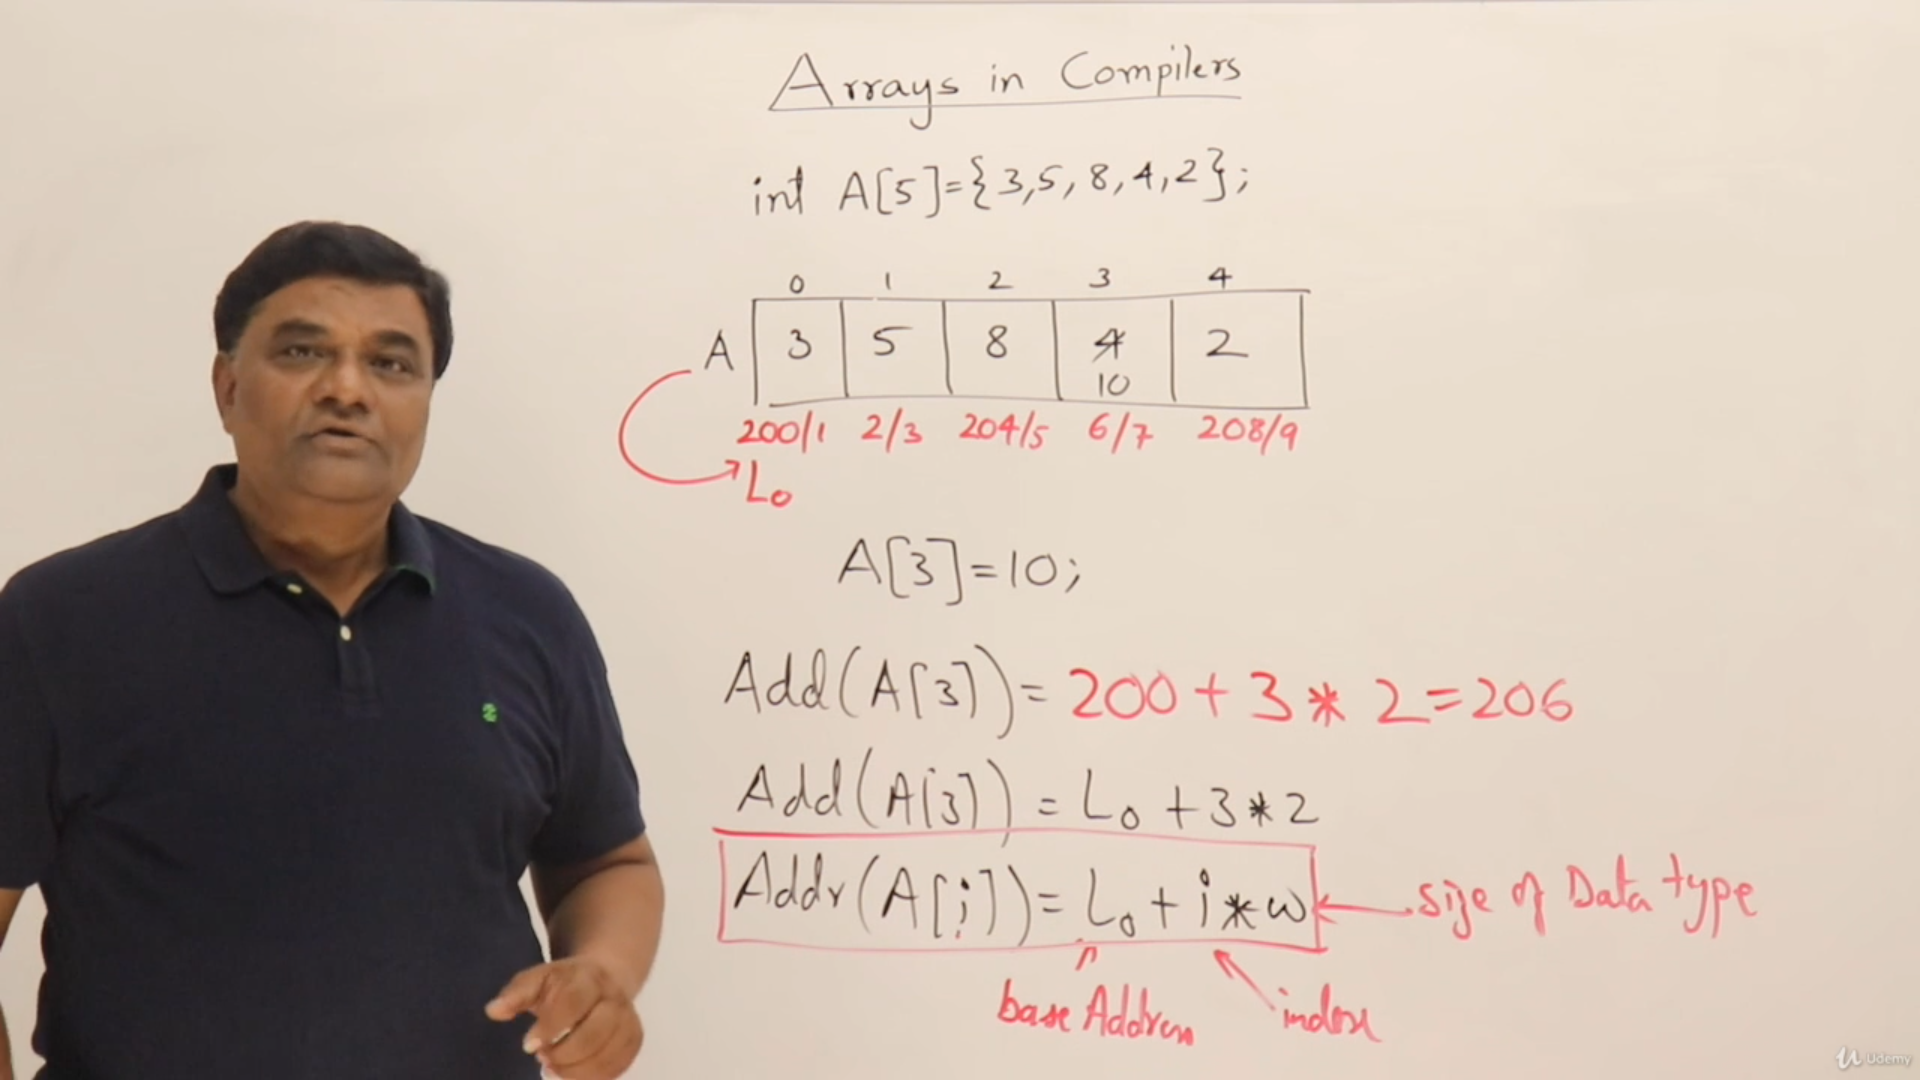 Arrays in Compilers
int A[5]={3,5,8,4,2};
0 1 2 3 4
A 3 5 8 4 2
10
200/1 2/3 204/5 6/7 208/9
L₀
A[3]=10;
Add(A[3])= 200+3*2=206
Add(A[3]) = L₀+3*2
Addr(A[i])= L₀+i*w size of Data type
base Address index
Udemy